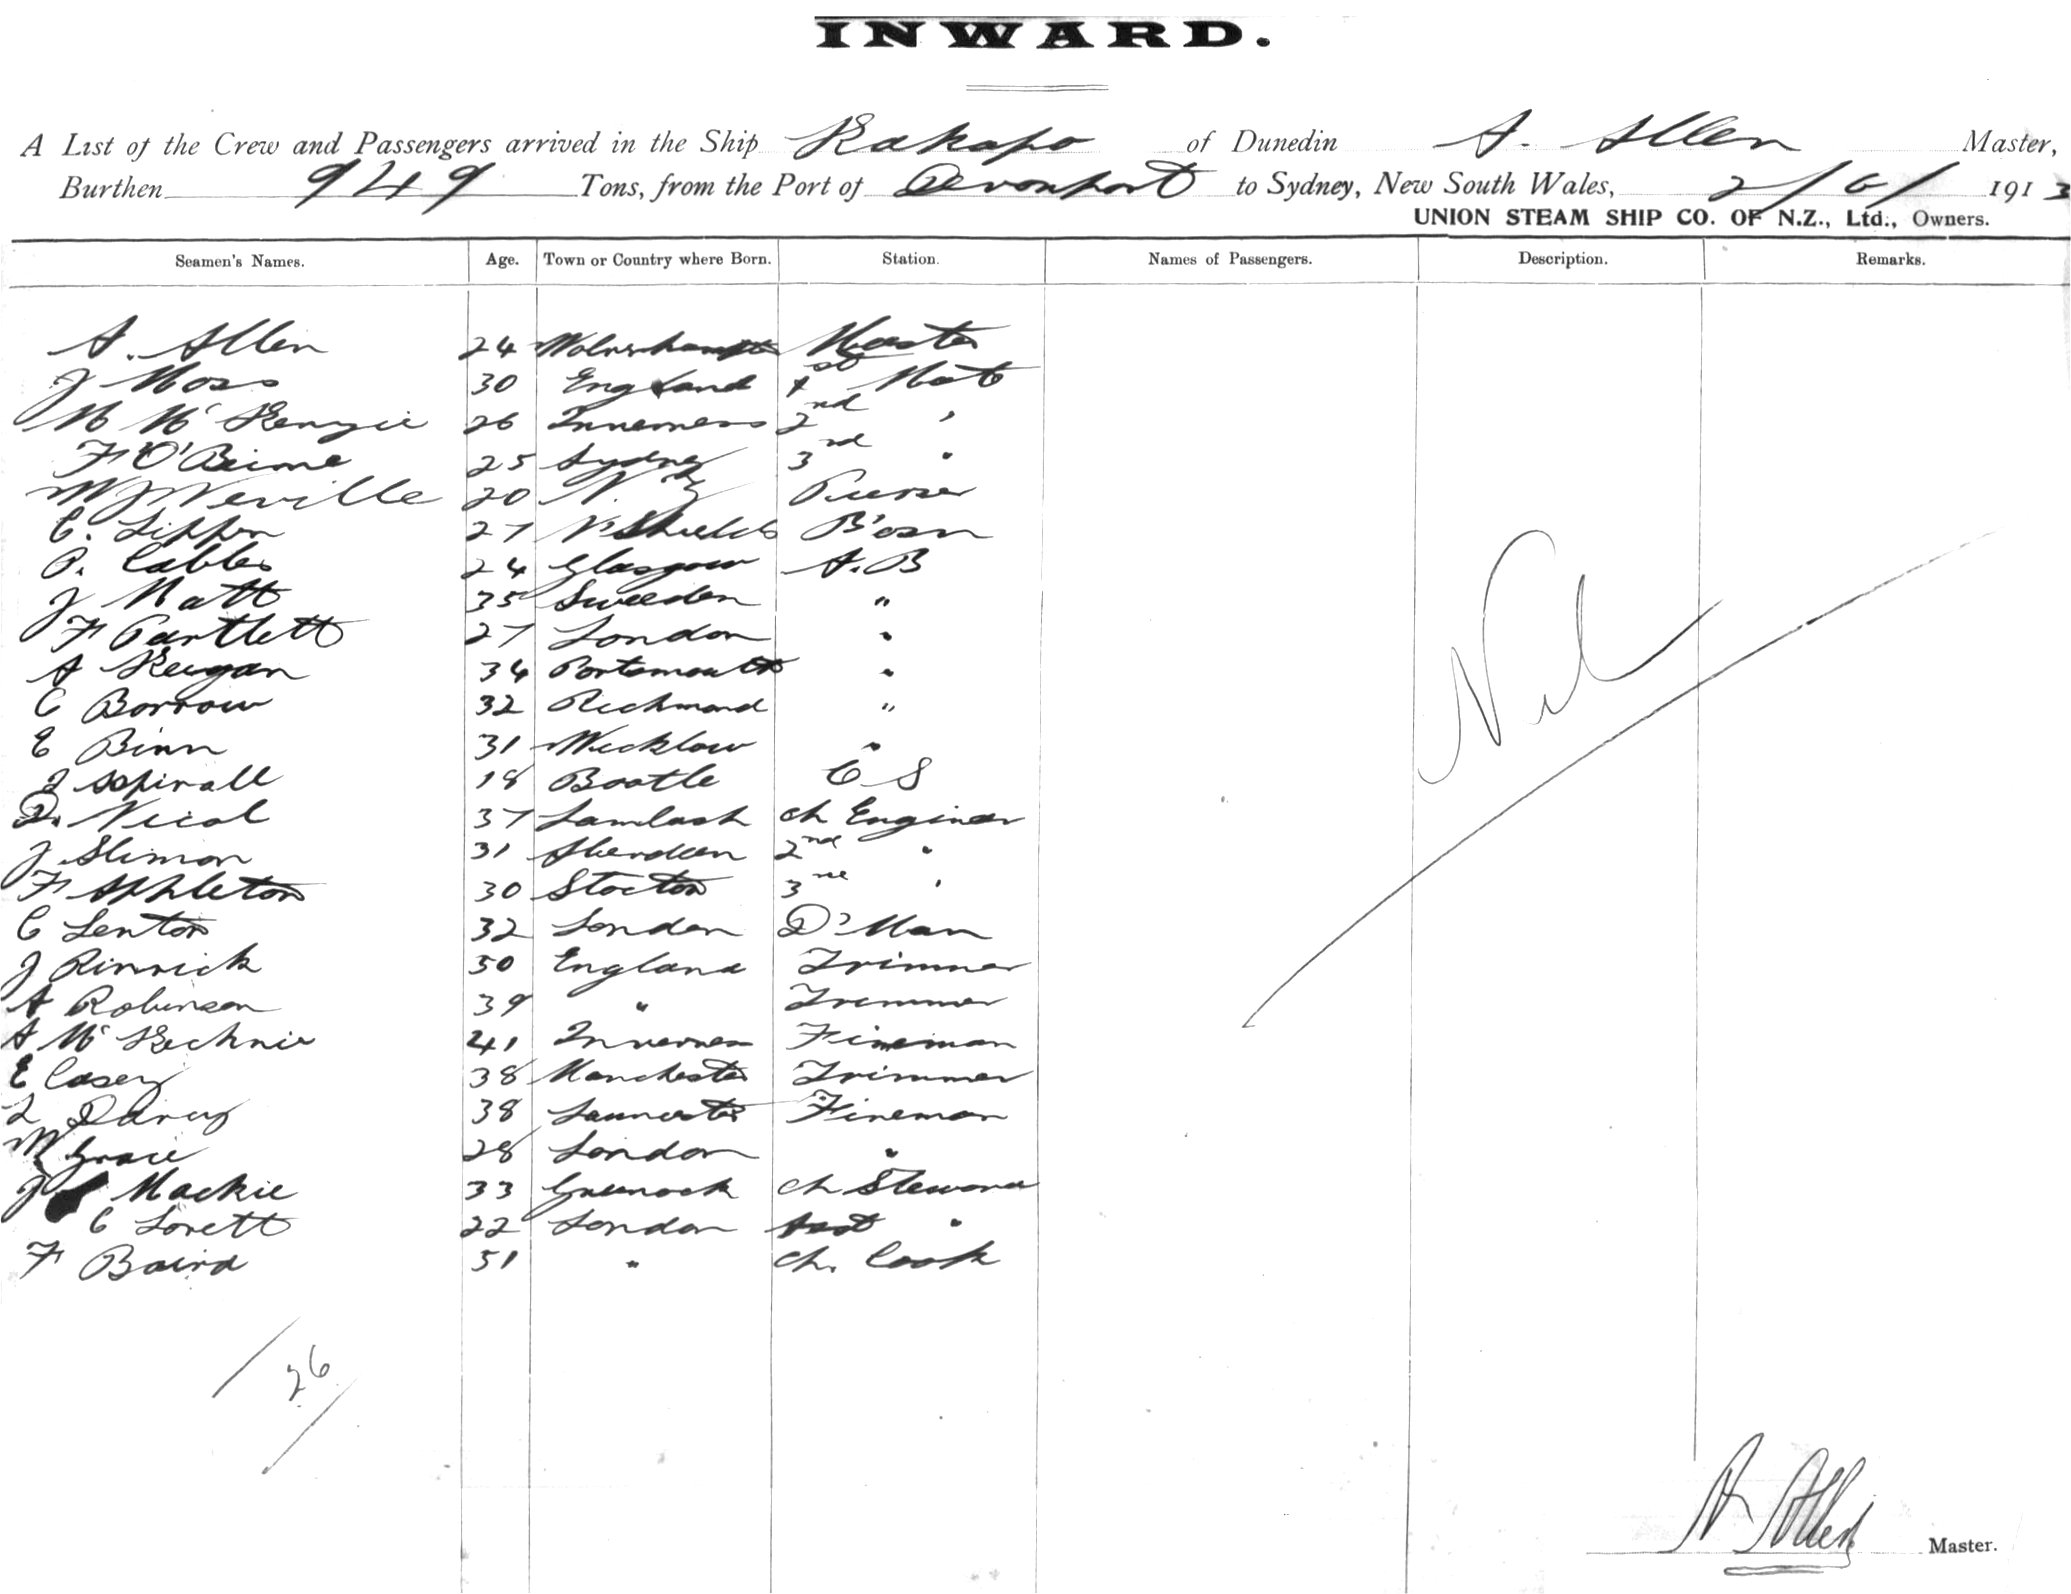 INWARD.
A List of the Crew and Passengers arrived in the Ship Kakapo of Dunedin A. Allen Master,
Burthen 949 Tons, from the Port of Devonport to Sydney, New South Wales, 2/6/1913
UNION STEAM SHIP CO. OF N.Z., Ltd., Owners.
Seamen's Names. Age. Town or Country where Born. Station. Names of Passengers. Description. Remarks.
A. Allen 24 Master
J Moss 30 England 1st Mate
M McKenzie 26 Inverness 2nd "
F O'Beirne 25 Sydney 3rd "
W J Neville 20 N. Z Purser
C. Lippon 27 N Shields B'osn
P. Cables 24 Glasgow A.B
J Matt 35 Sweeden "
F Partlett 27 London "
A Keegan 34 Portsmouth "
C Borrow 32 Richmond "
E Binn 31 Wicklow "
J Aspinall 18 Bootle O S
D. Nicol 37 Lamlash Ch Engineer
J Slimon 31 Aberdeen 2nd "
F Appleton 30 Stocton 3rd "
C Lenton 32 London D'Man
J Rinnick 50 England Trimmer
A Robinson 39 " Trimmer
A McKechnie 41 Inverness Fireman
E Casey 38 Manchester Trimmer
L Darcy 38 Fireman
M Grace 28 London "
J Mackie 33 Greenock Ch Steward
C Lovett 22 London Asst "
F Baird 51 " Ch. Cook
Nil
26
A Allen Master.